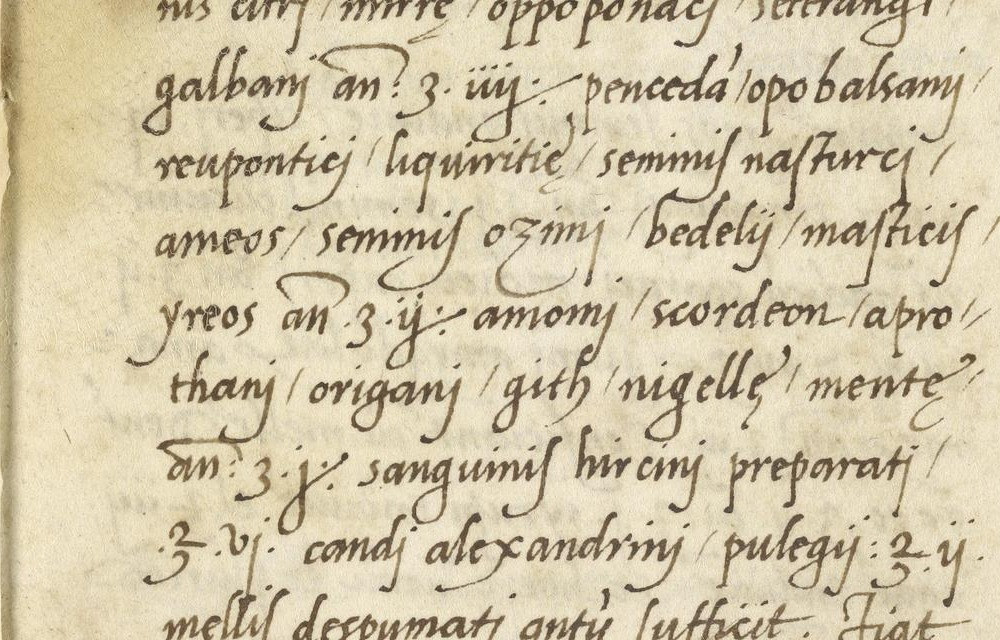 nis citri / mirrę / oppoponaci / seterungi /
galbanj an̄: ʒ. iiij: penceda' / opobalsamj /
reupontici / liquiritię / seminis nasturci /
ameos / seminis ozimj / bedelij / masticis /
yreos an̄ .ʒ. ij: amomj / scordeon / apro //
thani / origanj / gith / nigellę / mentę /
an̄: ʒ. j: sanguinis hircinj preparati /
.℥. vj. candj alexandrinj / pulegij: ℥. ij.
mellis despumati qntu' sufficit. Fiat